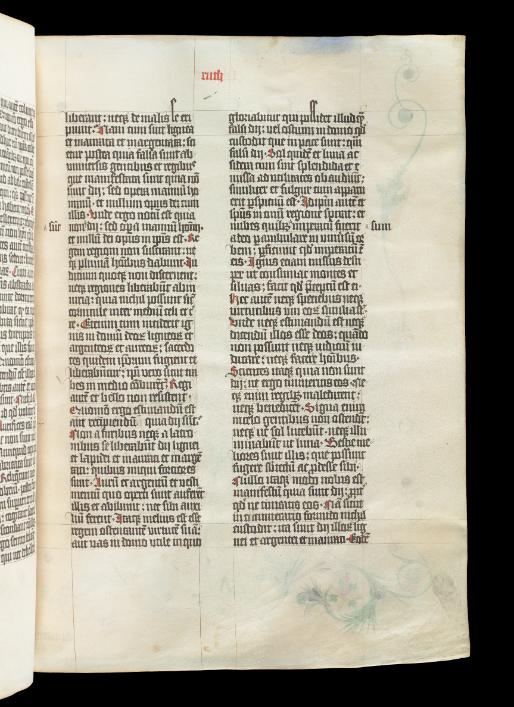 ruch
liberant: neq; de malis se eri
piunt. Nam cum sint lignea
et inaurata et inargentata: sci
etur postea quia falsa sunt ab
universis gentibus et regibus
que manifestum sunt quia nō
sunt dij: sed opera manuū ho
minū: et nullum opus dei cum
illis. Vnde ergo notū est quia
non dij: sed opa manuū hōim:
et nullū dei opus in ipis est. Re
gem regioni non suscitant: ne
q; pluviā hōibus dabunt. Iu
dicium quoq; non discernent:
neq; regiones liberabūt ab in
iuria: quia nichil possunt sic
cornicule inter mediū celi et t̄
re. Etenim cum inciderit ig
nis in domū deoꝝ ligneoꝝ et
argenteoꝝ et aureoꝝ: sacerdo
tes quidem ipsorum fugient et
liberabuntur: ipi vero sicut tra
bes in medio cōburēt. Regi
autē et bello non resistent.
Quomō ergo estimandū est
aut recipiendū: quia dij sūt.
Non a furibus neq; a latro
nibus se liberabūt dij lignei
et lapidei et inaurati et inargē
tati: quibus iniqui forciores
sunt. Aurū et argentū et vesti
mentū quo operti sunt auferēt
illis et abibunt: nec sibi auxi
liū ferent. Itaq; melius est esse
regem ostentantē virtutē suā:
aut vas in domo utile in quo
sūt
gloriabitur qui possidet illud: qͣ;
falsi dij: vel ostium in domo qd
custodit que in ipse sunt: quā
falsi dij. Sol quidē et luna ac
sidera cum sint splendida et e
missa ad utilitates obaudiūt:
similiter et fulgur cum apparu
erit pspicuū est. Idipm autē et
spūs in omī regione spirat: et
nubes quibus imperatū fuerit
a deo pambulare in univsū or
bem: pficiunt qd imperatū ē
eis. Ignis eciam missus desu
per ut consumat montes et
silvas: facit qd p̄ceptū est ei.
Hec autē neq; speciebus neq;
virtutibus uni eoꝝ similia sūt.
Vnde neq; estimandū est neq;
dicendū illos esse deos: quādo
non possunt neq; iudiciū iu
dicare: neq; facere hōibus.
Scientes itaq; quia non sunt
dij: ne ergo timueritis eos. Ne
q; enim regibꝫ maledicent:
neq; benedicēt. Signa enim
in celo gentibus non ostendēt:
neq; ut sol lucebūt: neq; illu
minabūt ut luna. Bestie me
liores sunt illis: que possunt
fugere sub tectū ac pdesse sibi.
Nullo itaq; modo nobis est
manifestū quia sunt dij: ppt
qd ne timeatis eos. Nā sicut
in cucumerario formido nichil
custodit: ita sunt dij illoꝝ lig
nei et argentei et inaurati. Eodē
sunt